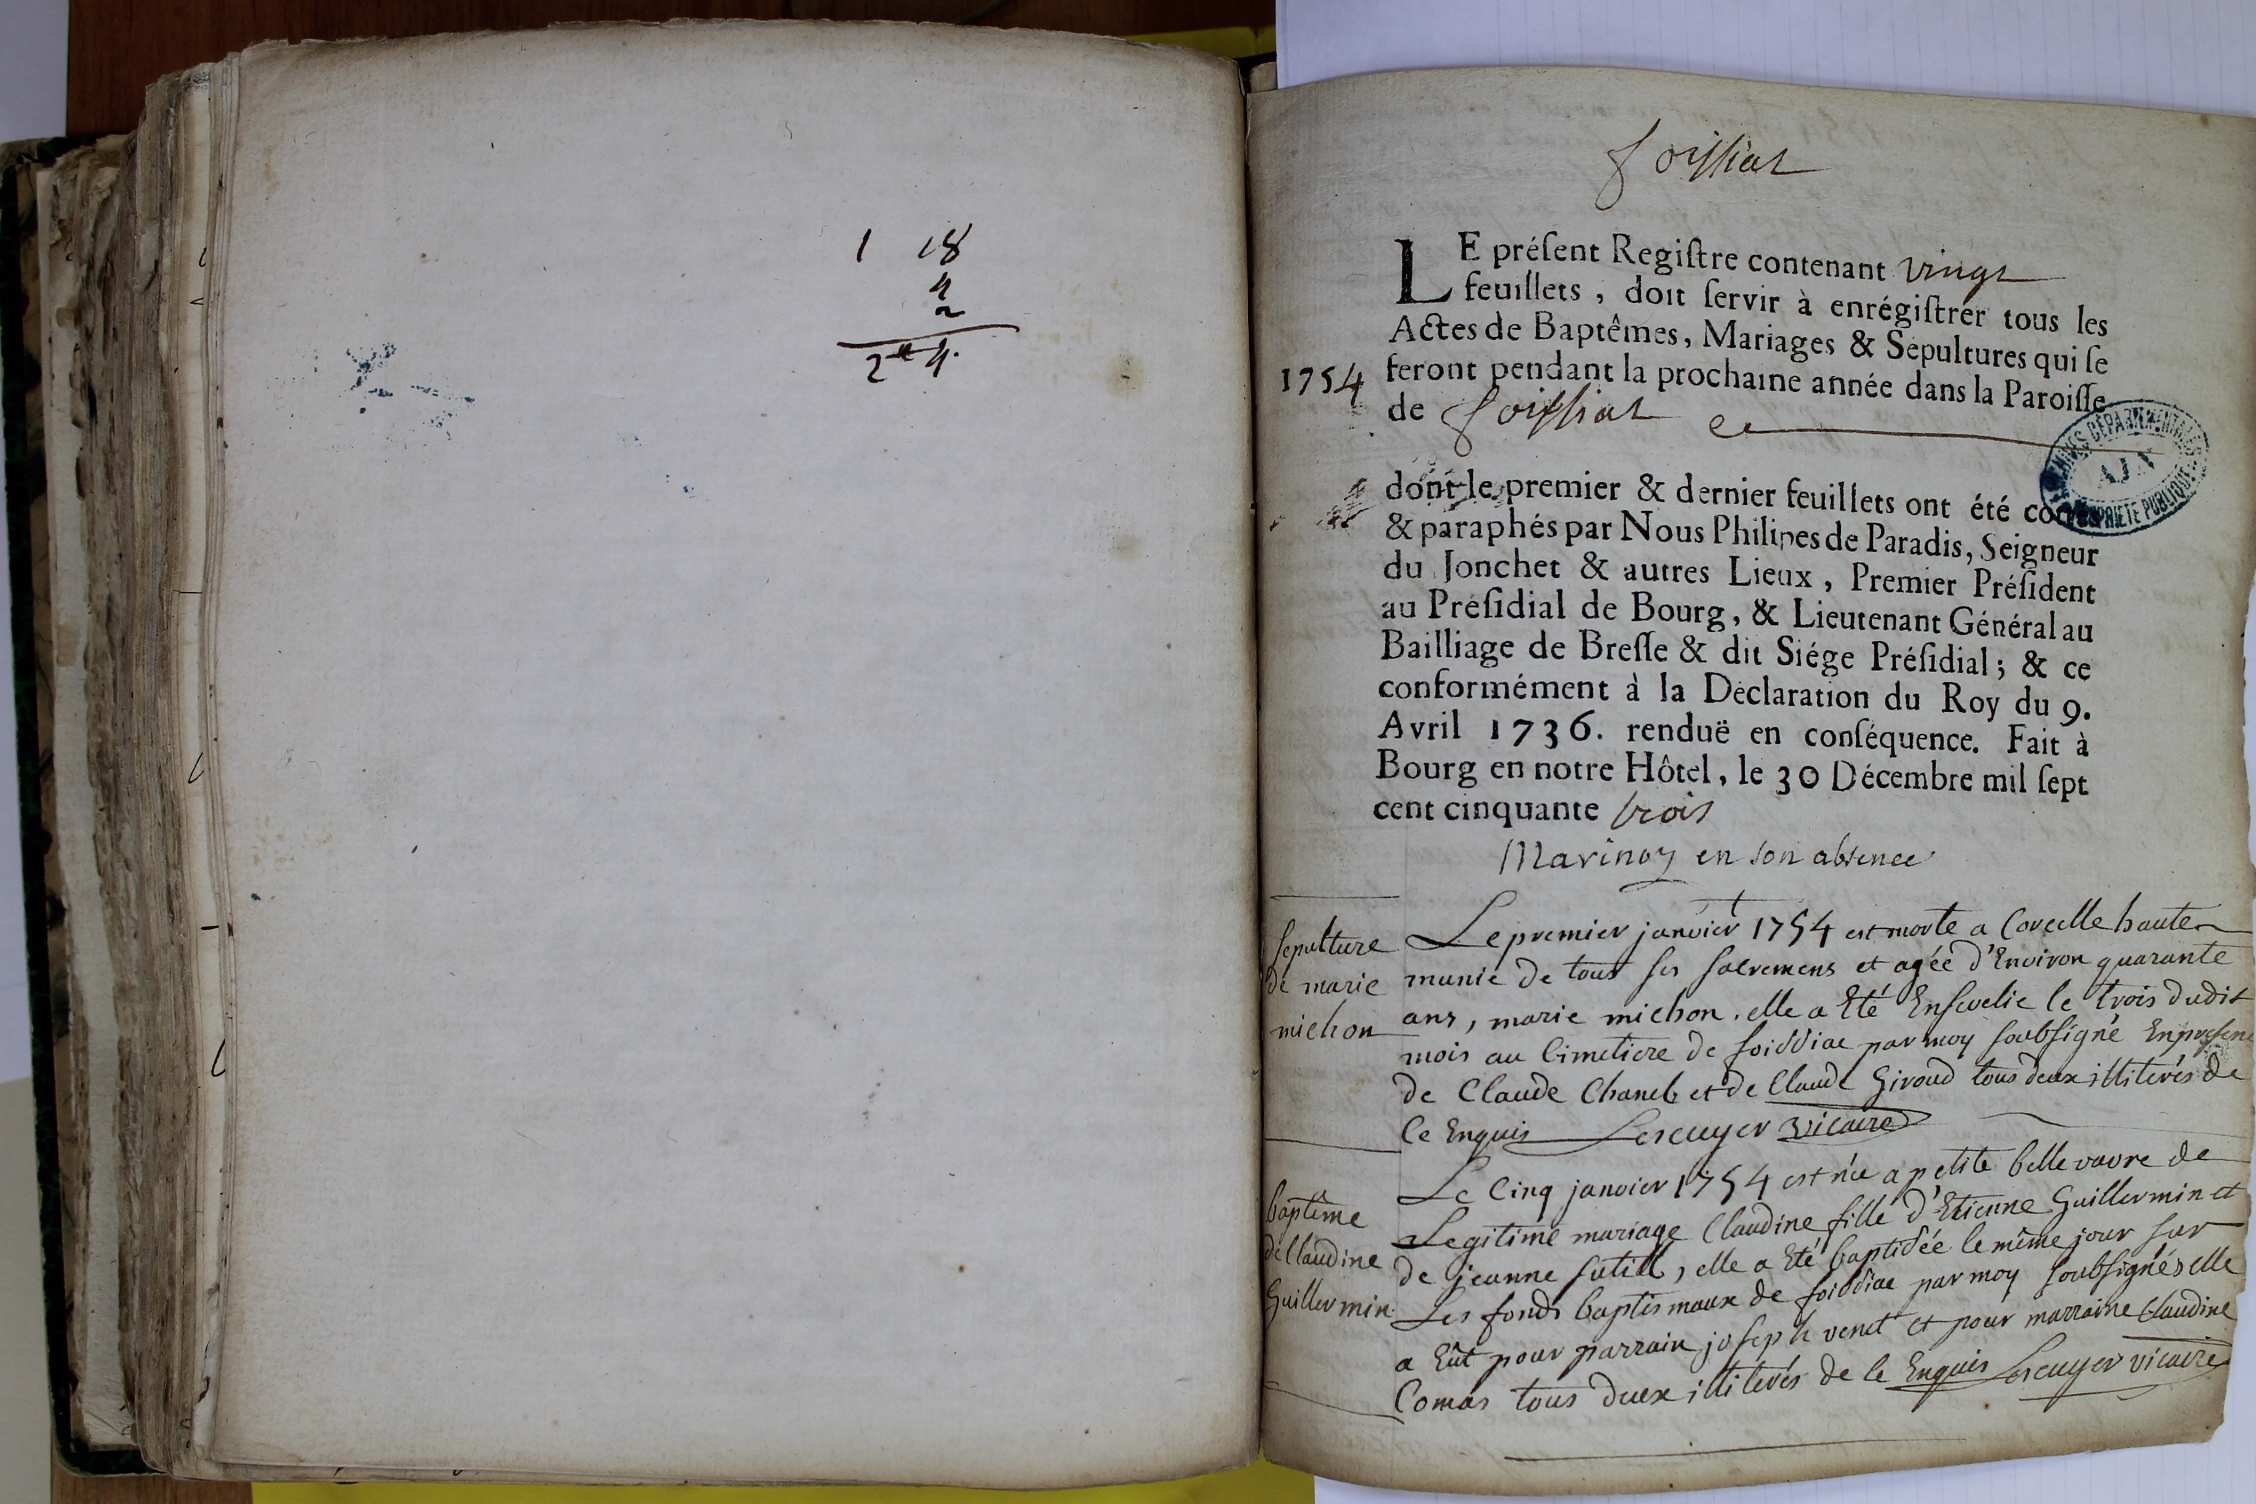 1 18
4
2
24.
foissiat
LE préſent Regiſtre contenant vingt
feuillets, doit ſervir à enrégiſtrer tous les
Actes de Baptêmes, Mariages & Sépultures qui ſe
1754 feront pendant la prochaine année dans la Paroiſſe
de foissiat
dont le premier & dernier feuillets ont été cottés
& paraphés par Nous Philipes de Paradis, Seigneur
du Jonchet & autres Lieux, Premier Préſident
au Préſidial de Bourg, & Lieutenant Général au
Bailliage de Breſſe & dit Siége Préſidial; & ce
conformément à la Déclaration du Roy du 9.
Avril 1736. renduë en conſéquence. Fait à
Bourg en notre Hôtel, le 30 Décembre mil ſept
cent cinquante trois
en son absence
ARCHIVES DÉPARTEMENTALES
AIN
PROPRIÉTÉ PUBLIQUE
sepulture
de marie
michon
Le premier janvier 1754 est morte a Corcelle haute
munie de tous ses sacremens et agée d'Environ quarante
ans, marie michon. elle a Eté Ensevelie le trois dudit
mois au Cimetiere de foissiac par moy soubsigné En presence
de Claude Chanel et de Claude Giroud tous deux illiterés de
ce Enquis Lescuyer vicaire
baptême
de Claudine
Guillermin
Le Cinq janvier 1754 est née a petite belle vavre de
Legitime mariage Claudine fille d'Etienne Guillermin et
de jeanne sutill, elle a Eté baptisée le même jour sur
Les fonds baptismaux de foissiac par moy soubsigné elle
a Eût pour parrain joseph venet et pour marraine Claudine
Comas tous deux illiterés de le Enquis Lescuyer vicaire